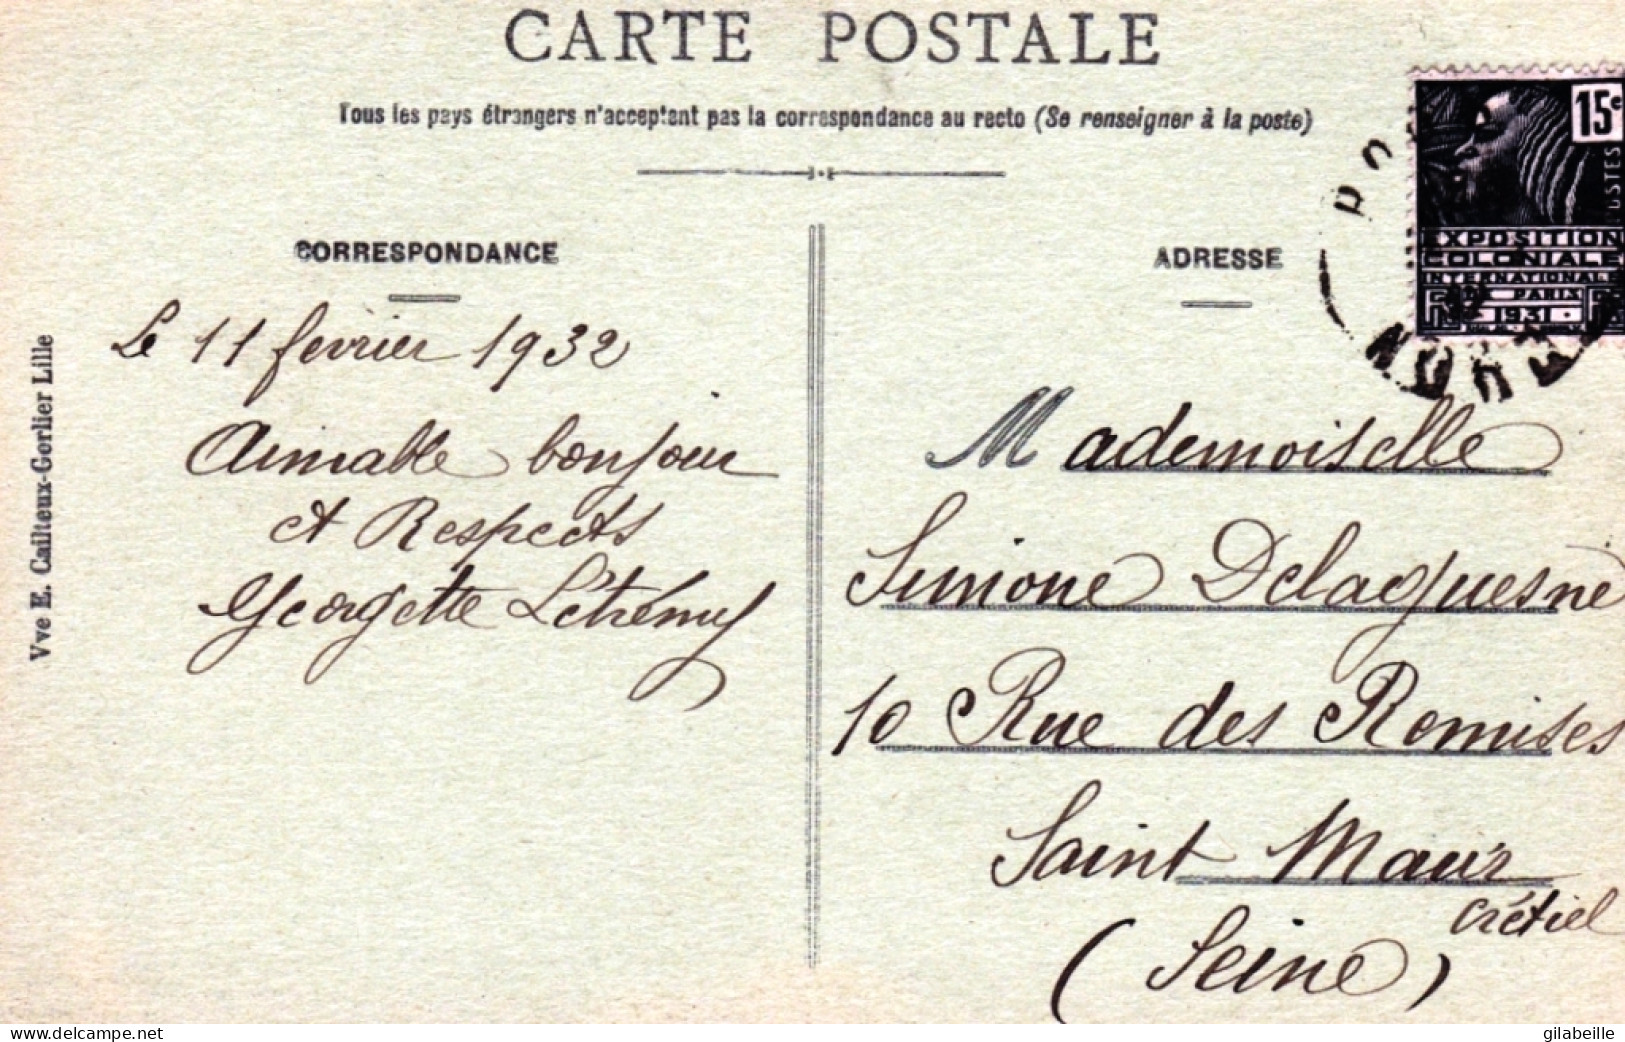 CARTE POSTALE
Tous les pays étrangers n'acceptent pas la correspondance au recto (Se renseigner à la poste)
CORRESPONDANCE
Le 11 février 1932
Aimable bonjour
et Respects
Georgette Létrémy
Vve E. Cailteux-Gorlier Lille
ADRESSE
15c
POSTES
EXPOSITION
COLONIALE
INTERNATIONALE
DE PARIS
1931
Mademoiselle
Simone Delaquesne
10 Rue des Remises
Saint Maur
Crétiel
(Seine)
delcampe.net
gilabeille